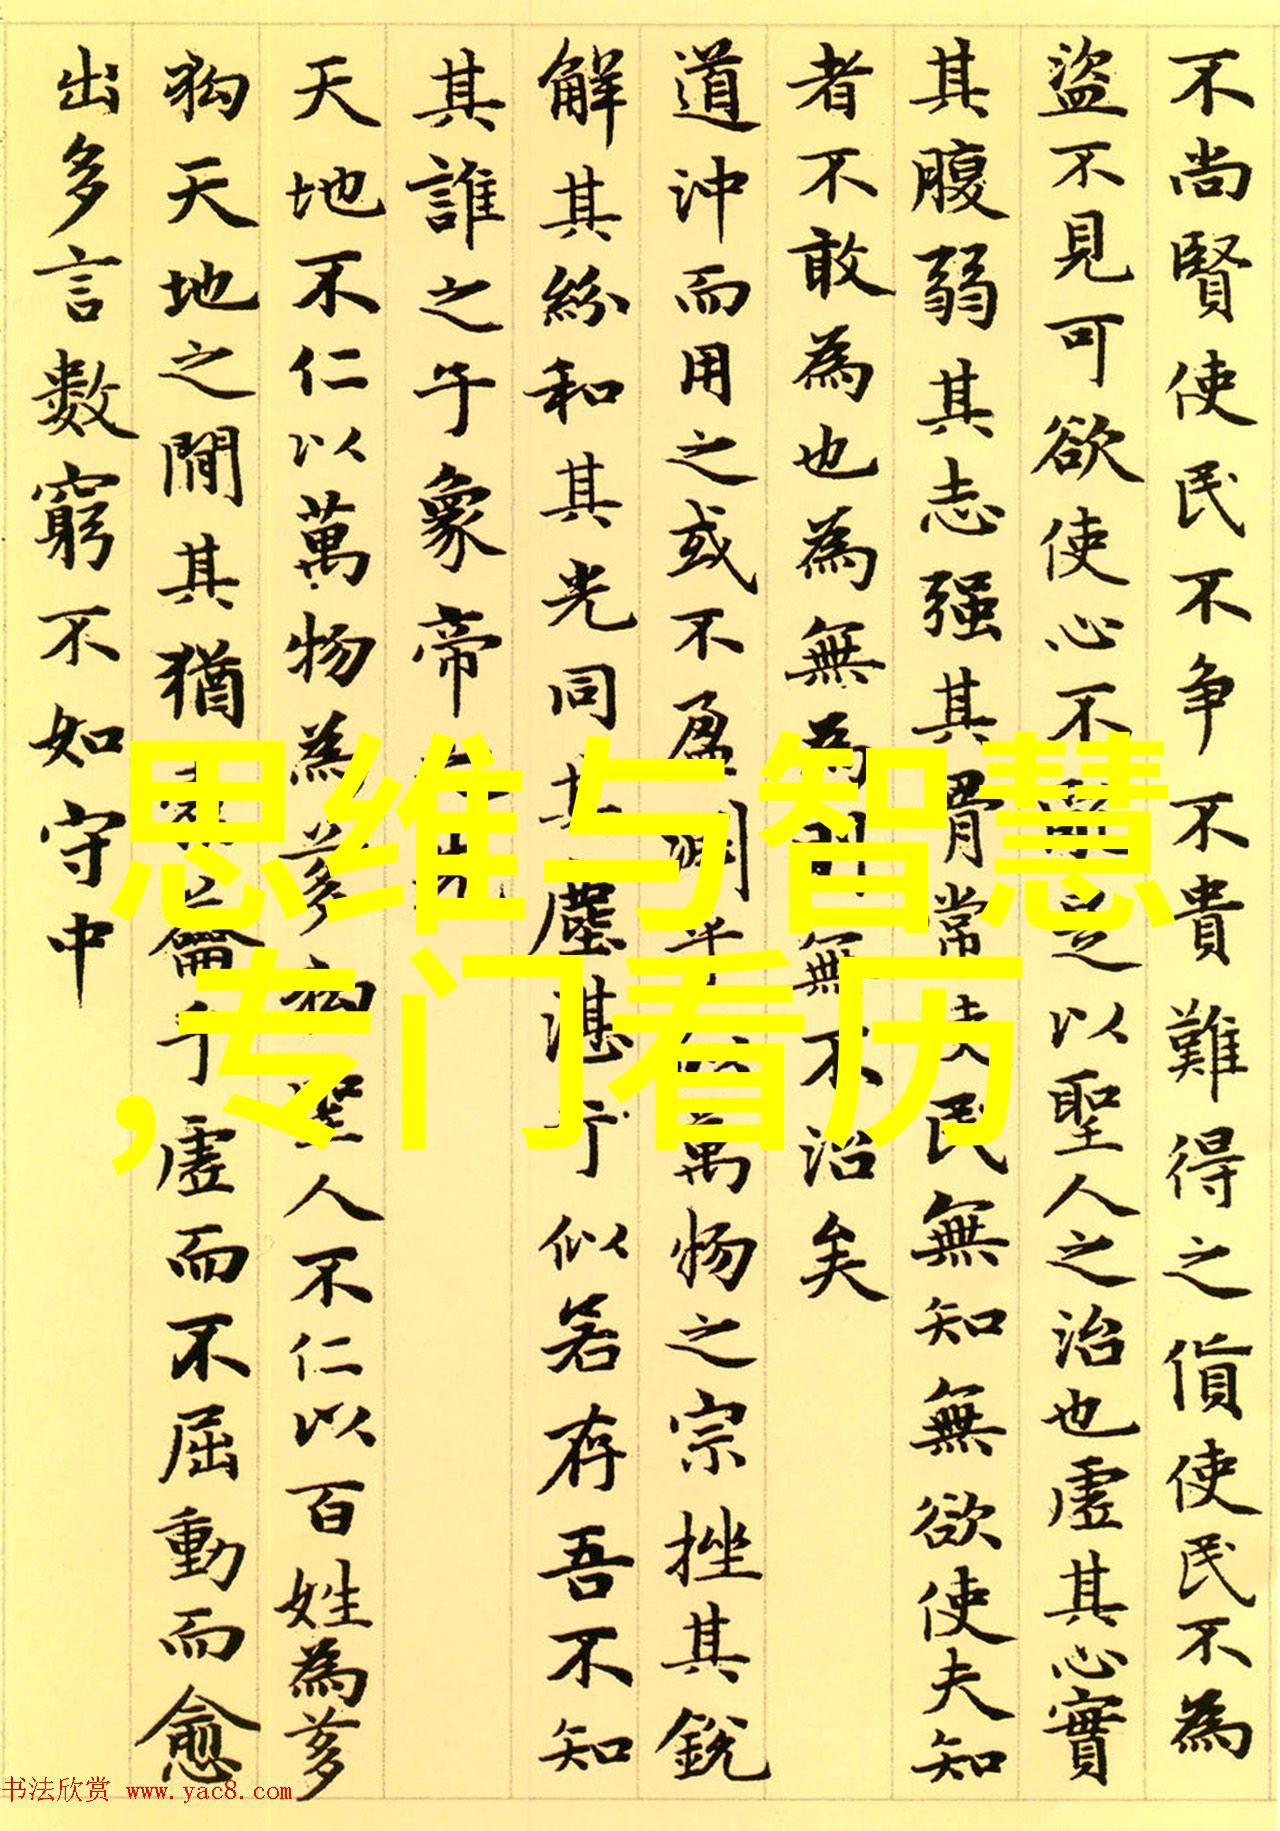 不尚賢使民不争不貴難得之貨使民不為
盜不見可欲使心不亂是以聖人之治也虛其心實
其腹弱其志强其骨常使民無知無欲使夫知
者不敢為也為無為則無不治矣
道沖而用之或不盈淵乎似萬物之宗挫其銳
解其紛和其光同其塵湛乎似若存吾不知
其誰之子象帝之先
天地不仁以萬物為芻狗聖人不仁以百姓為芻
狗天地之間其猶橐籥乎虛而不屈動而愈
出多言數窮不如守中
思维与智慧
,专门看历
书法欣赏 www.yac8.com